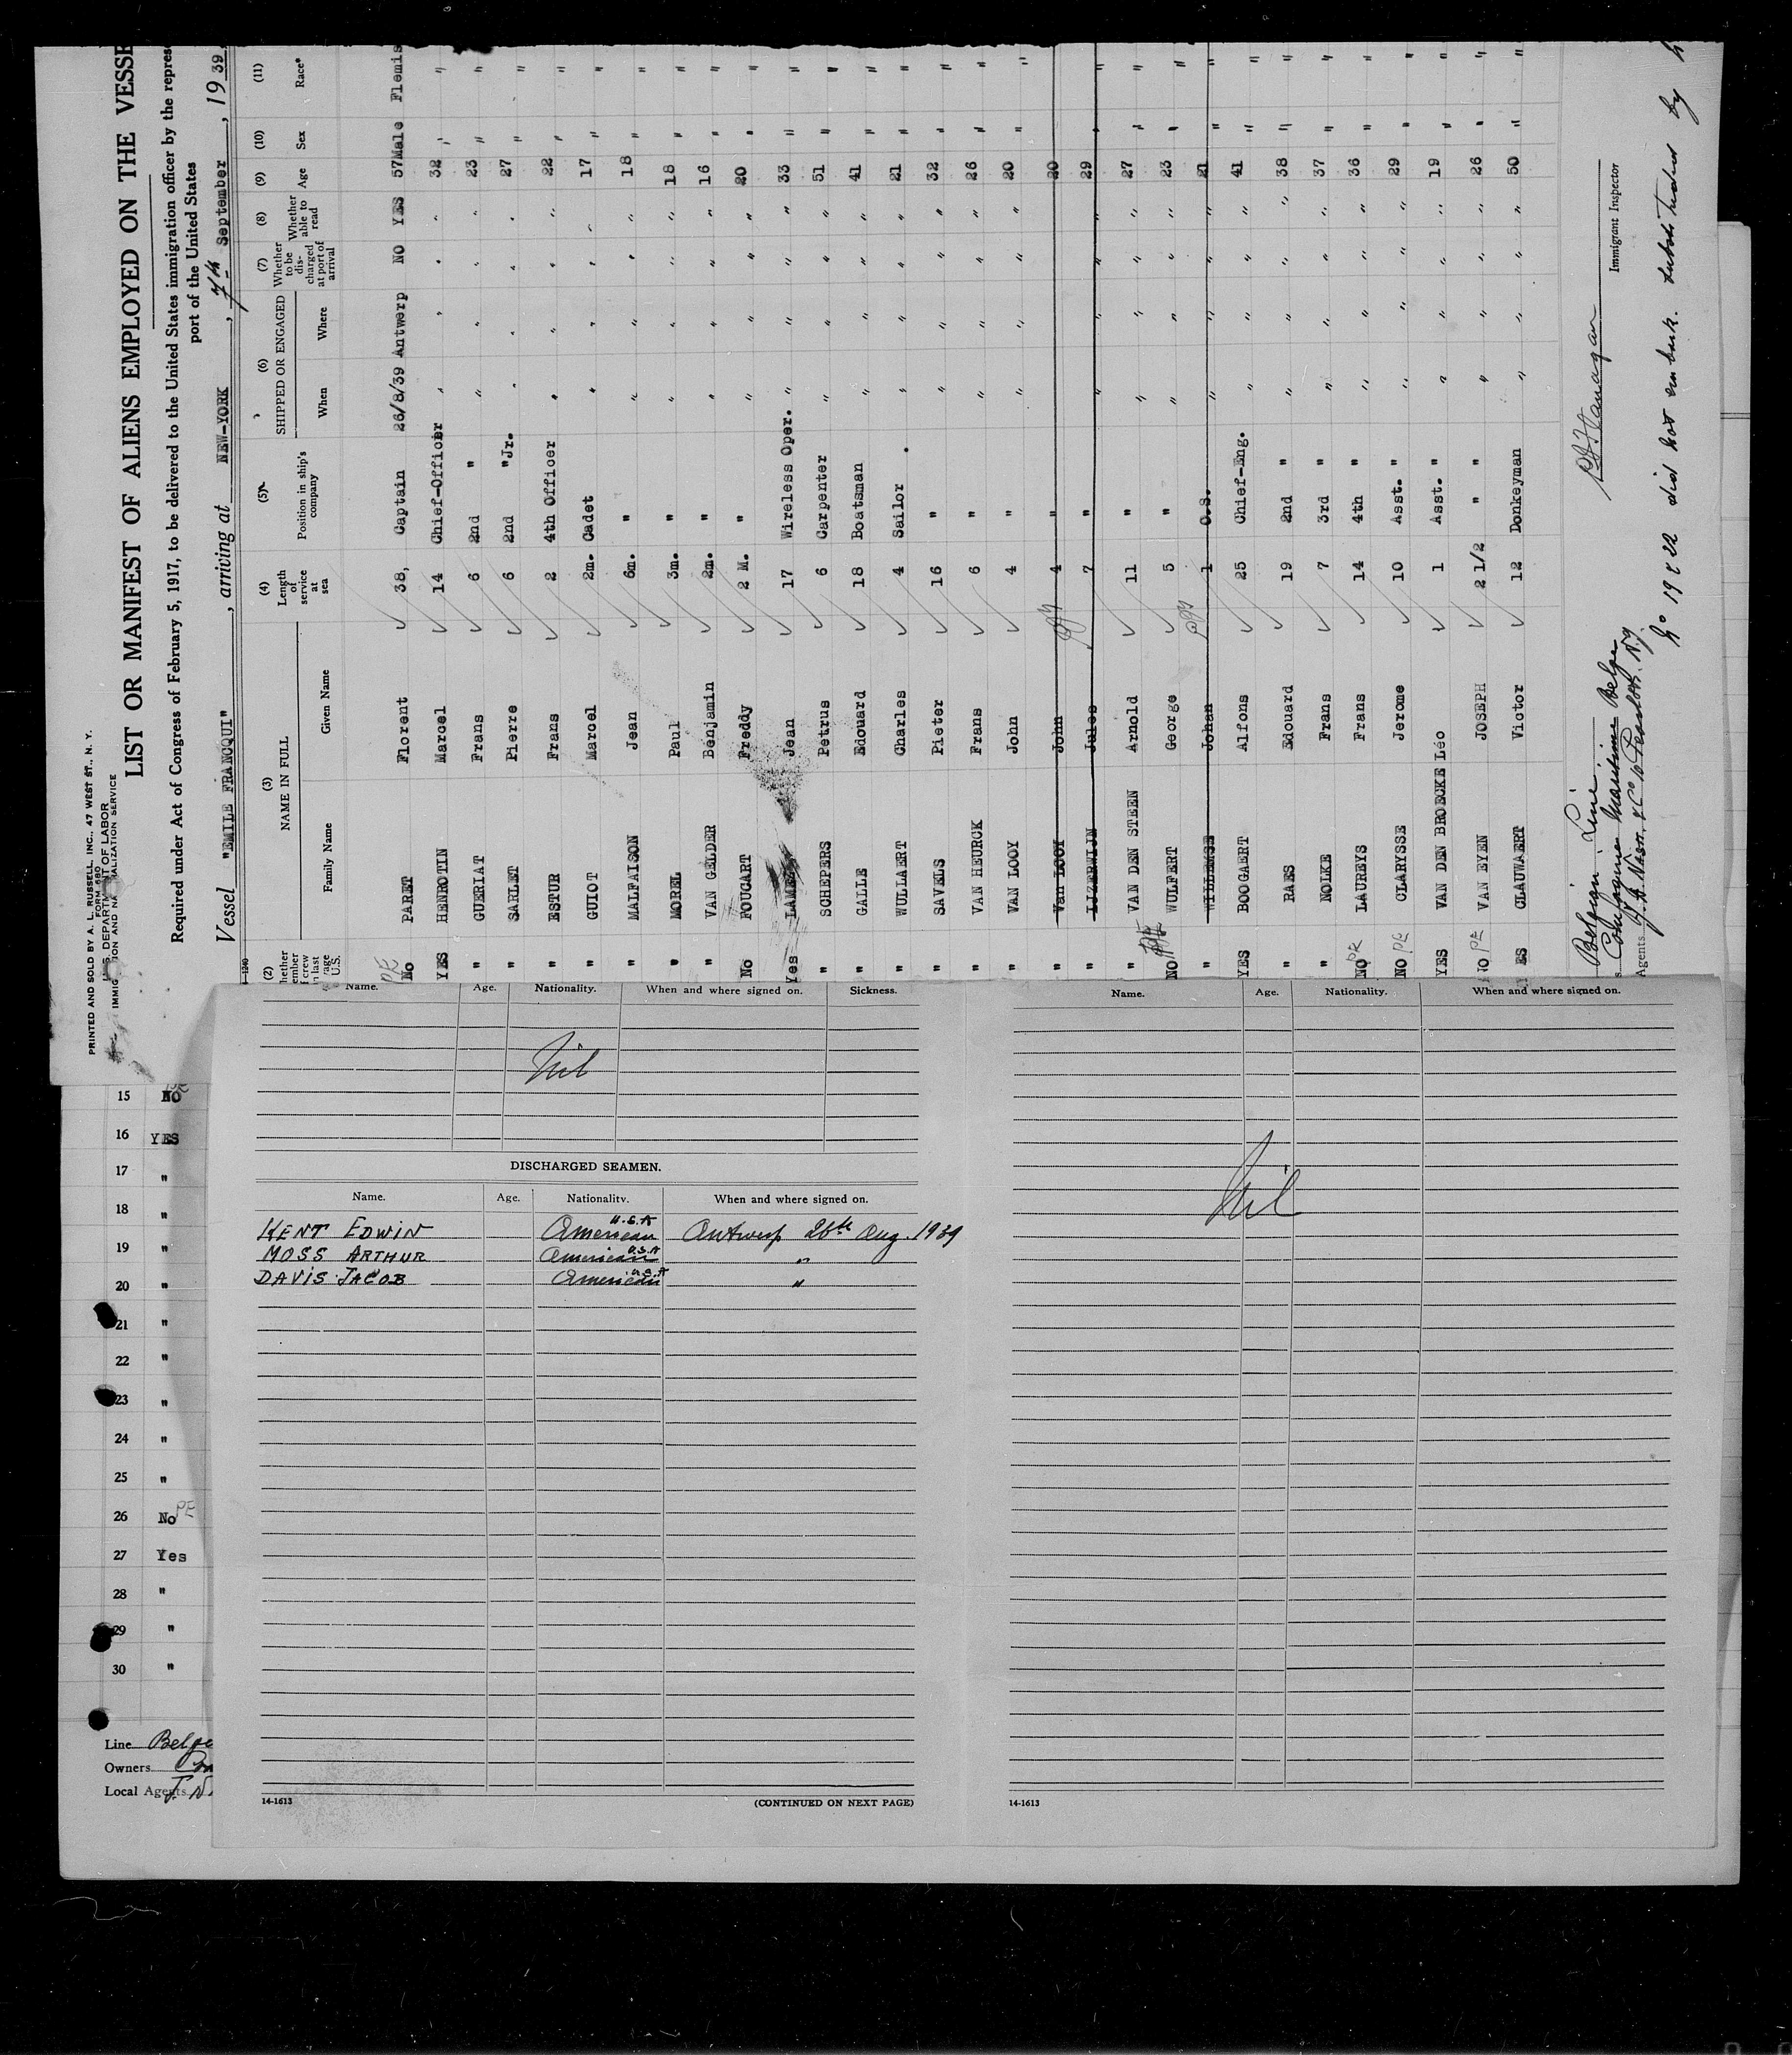 PRINTED AND SOLD BY A. L. RUSSELL, INC., 47 WEST ST., N. Y.
FORM 680
U.S. DEPARTMENT OF LABOR
IMMIGRATION AND NATURALIZATION SERVICE
LIST OR MANIFEST OF ALIENS EMPLOYED ON THE VESSE
Required under Act of Congress of February 5, 1917, to be delivered to the United States immigration officer by the repres
port of the United States
Vessel "EMILE FRANCQUI", arriving at NEW-YORK, 7th September, 1939,
(2) (3) (4) (5) (6) (7) (8) (9) (10) (11)
NAME IN FULL Length of service at sea Position in ship's company SHIPPED OR ENGAGED Whether to be discharged at port of arrival Whether able to read Age Sex Race*
Family Name Given Name When Where
No PARET Florent 38, Captain 26/8/39 Antwerp NO YES 57 Male Flemis
YES HENROTIN Marcel 14 Chief-Officer " " " " 32 " "
" GUERIAT Frans 6 2nd " " " " " 23 " "
" SARLET Pierre 6 2nd "Jr. " " " " 27 " "
" ESTUR Frans 2 4th Officer " " " " 22 " "
" GUIOT Marcel 2m. Cadet " " " " 17 " "
" MALFAISON Jean 6m. " " " " " 18 " "
" MOREL Paul 3m. " " " " " 18 " "
" VAN GELDER Benjamin 2m. " " " " " 16 " "
No FOUCART Freddy 2 M. " " " " " 20 " "
Yes Jean 17 Wireless Oper. " " " " 33 " "
" SCHEPERS Petrus 6 Carpenter " " " " 51 " "
" GALLE Edouard 18 Boatsman " " " " 41 " "
" WULLAERT Charles 4 Sailor . " " " " 21 " "
" SAVELS Pieter 16 " " " " " 32 " "
" VAN HEURCK Frans 6 " " " " " 26 " "
" VAN LOOY John 4 " " " " " 20 " "
" Van LOOY John 4 " 20
" IJZERWIJN Jules 7 " " " " " 29 " "
" VAN DEN STEEN Arnold 11 " " " " " 27 " "
NO WULFERT George 5 " " " " " 23 " "
" WILLEMSE Johan 1 O.S. " " " " 21 " "
YES BOOGAERT Alfons 25 Chief-Eng. " " " " 41 " "
" RAES Edouard 19 2nd " " " " " 38 " "
" NOLKE Frans 7 3rd " " " " " 37 " "
NO PE LAUREYS Frans 14 4th " " " " " 36 " "
NO PE CLARYSSE Jerome 10 Asst. " " " " " 29 " "
YES VAN DEN BROECKE Léo 1 Asst. " " " " " 19 " "
NO PE VAN EYEN JOSEPH 2 1/2 " " " " " " 26 " "
YES CLAUWAERT Victor 12 Donkeyman " " " " 50 " "
Belgian Line
Compagnie Maritime Belge
Agents
Immigrant Inspector
No 19 & 22 did not embark. by
Name. Age. Nationality. When and where signed on. Sickness.
Nil
DISCHARGED SEAMEN.
Name. Age. Nationality. When and where signed on.
KENT EDWIN American U.S.A Antwerp 26th Aug. 1939
MOSS ARTHUR American U.S.A "
DAVIS JACOB American U.S.A "
14-1613 (CONTINUED ON NEXT PAGE)
Name. Age. Nationality. When and where signed on.
Nil
14-1613
15 NO
16 YES
17 "
18 "
19 "
20 "
21 "
22 "
23 "
24 "
25 "
26 No PE
27 Yes
28 "
29 "
30 "
Line Belge
Owners
Local Agents